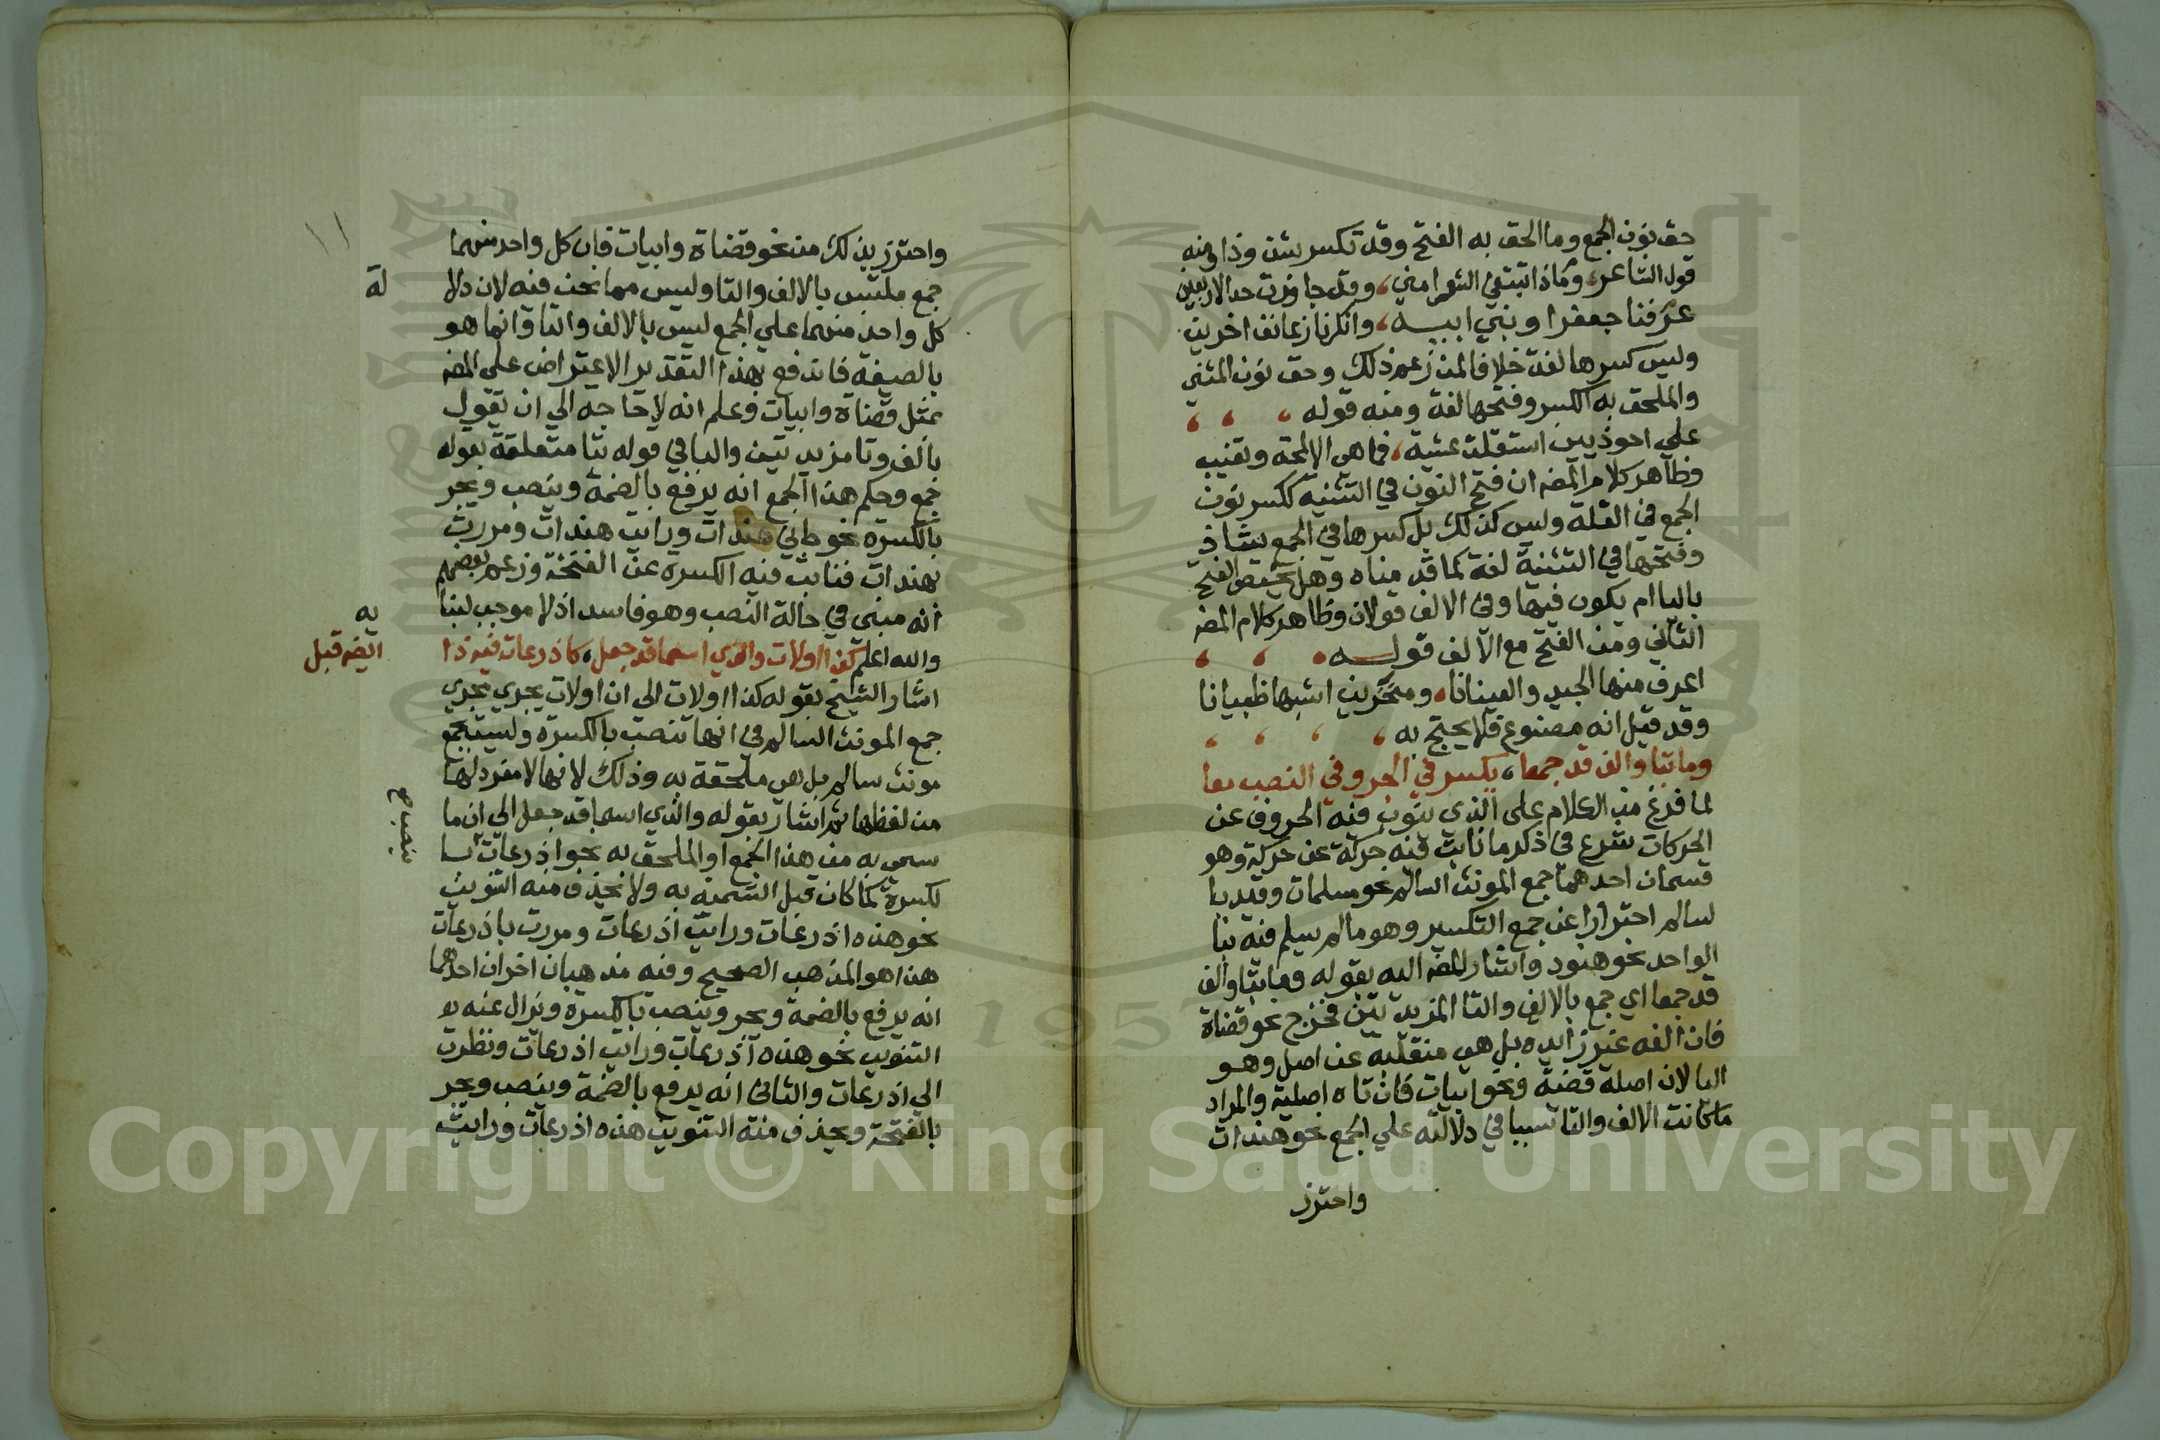 حق نون الجمع وما الحق به الفتح وقد تكسر شذوذا ومنه
قول الشاعر، وماذا تبتغي الشعرا مني، وقد جاوزت حد الاربعين
عرفنا جعفرا وبني ابيه، وانكرنا زعانف اخرين
وليس كسرها لغة خلافا لمن زعم ذلك وحق نون المثنى
والملحق به الكسر وفتحها لغة ومنه قوله
علي احوذيين استقلت عشية، فما هي الا لمحة وتغيب
وظاهر كلام المصه ان فتح النون في التثنية ككسر نون
الجمع في القلة وليس كذلك بل كسرها في الجمع شاذ
وفتحها في التثنية لغة كما قدمناه وهل يختص الفتح
باليا ام يكون فيها وفي الالف قولان وظاهر كلام المصه
الثاني ومن الفتح مع الالف قوله
اعرف منها الجيد والعينانا، ومنخرين اشبها ظبيانا
وقد قيل انه مصنوع فلا يحتج به
وما بتا والف قد جمعا، يكسر في الجر وفي النصب معا
لما فرغ من الكلام على الذي تنوب فيه الحروف عن
الحركات شرع في ذكر ما نابت فيه حركة عن حركة وهو
قسمان احدهما جمع المونث السالم نحو مسلمات وقيد با
لسالم احترازا عن جمع التكسير وهو ما لم يسلم فيه بنا
الواحد نحو هنود واشار المصه اليه بقوله وما بتا والف
قد جمعا اي جمع بالالف والتا المزيدتين فخرج نحو قضاة
فان الفه غير زايده بل هي منقلبه عن اصل وهو
اليا لان اصله قضية ونحو ابيات فان تاه اصلية والمراد
ما كانت الالف والتا سببا في دلالته علي الجمع نحو هندات
واحترز
١١
واحترز بذلك من نحو قضاة وابيات فان كل واحد منهما
جمع ملتبس بالالف والتا وليس مما نحن فيه لان دلا
لة
كل واحد منهما علي الجمع ليس بالالف والتا وانما هو
بالصيغة فاندفع بهذا التقدير الاعتراض علي المصه
بمثل قضاة وابيات وعلم انه لا حاجه الي ان تقول
بالف وتا مزيدتين والبا في قوله بتا متعلقة بقوله
جمع وحكم هذا الجمع انه يرفع بالضمة وينصب ويجر
بالكسرة نحو جاني هندات ورايت هندات ومررت
بهندات فنابت فيه الكسرة عن الفتحة وزعم بعضهم
انه مبني في حالة النصب وهو فاسد اذ لا موجب لبنا
يه
والله اعلم كذا اولات والذي اسما قد جعل، كاذرعات فيه ذا
ايضه قبل
اشار الشيخ بقوله كذا اولات الي ان اولات يجري مجري
جمع المونث السالم في انها تنصب بالكسرة وليست بجمع
مونث سالم بل هي ملحقة به وذلك لانها لا مفرد لها
من لفظها ثم اشار بقوله والذي اسما قد جعل الي ان ما
سمي به من هذا الجمع او الملحق به نحو اذرعات با
ينصب
لكسرة كما كان قبل التسمية به ولا نحذف منه التنوين
نحو هذه اذرعات ورايت اذرعات ومررت باذرعات
هذا هو المذهب الصحيح وفيه مذهبان اخران احدهما
انه يرفع بالضمة ويجر وينصب بالكسرة ويزال عنه
التنوين نحو هذه اذرعات ورايت اذرعات ونظرت
الي اذرعات والثاني انه يرفع بالضمة وينصب ويجر
بالفتحة ويحذف منه التنوين هذه اذرعات ورايت
1957
Copyright © King Saud University